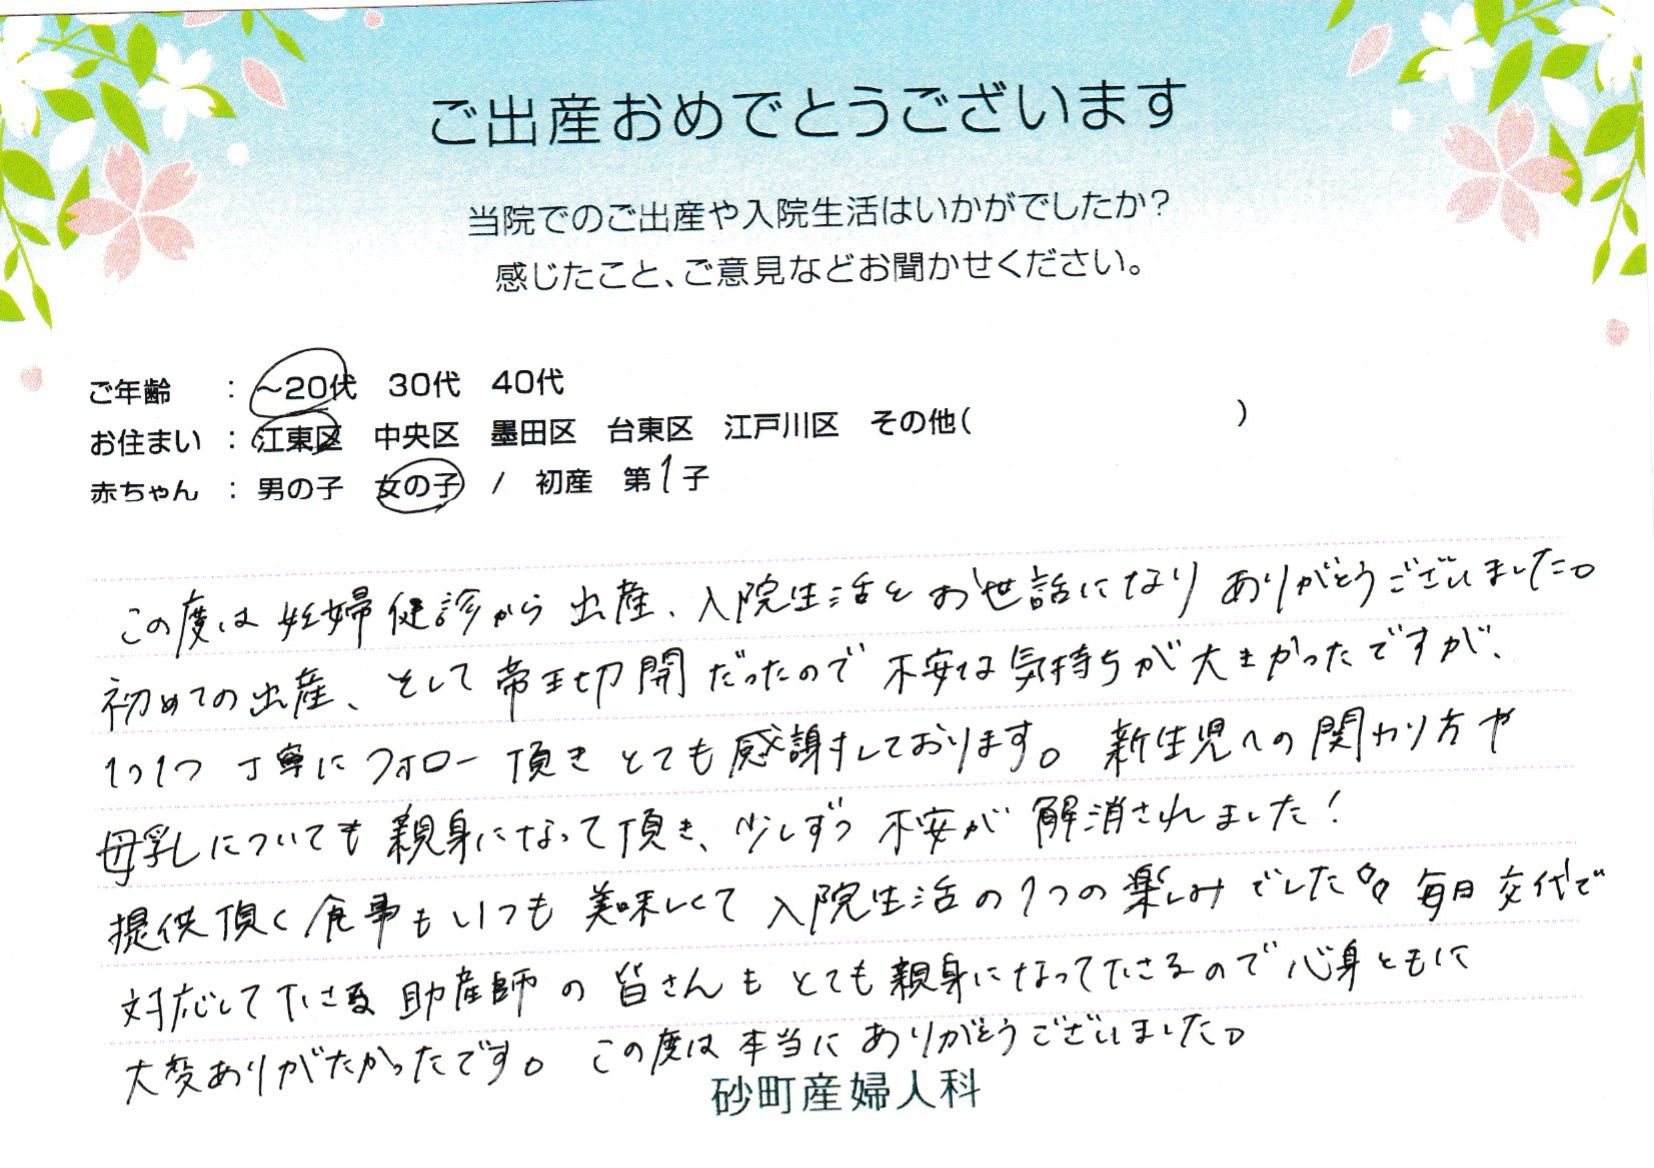 ご出産おめでとうございます
当院でのご出産や入院生活はいかがでしたか?
感じたこと、ご意見などお聞かせください。
ご年齢 : ～20代 30代 40代
お住まい : 江東区 中央区 墨田区 台東区 江戸川区 その他( )
赤ちゃん : 男の子 女の子 / 初産 第1子
この度は妊婦健診から出産、入院生活とお世話になりありがとうございました。
初めての出産、そして帝王切開だったので不安な気持ちが大きかったですが、
1つ1つ丁寧にフォロー頂きとても感謝しております。新生児への関わり方や
母乳についても親身になって頂き、少しずつ不安が解消されました!
提供頂く食事もいつも美味しくて入院生活の1つの楽しみでした。。毎日交代で
対応して下さる助産師の皆さんもとても親身になって下さるので心身ともに
大変ありがたかったです。この度は本当にありがとうございました。
砂町産婦人科